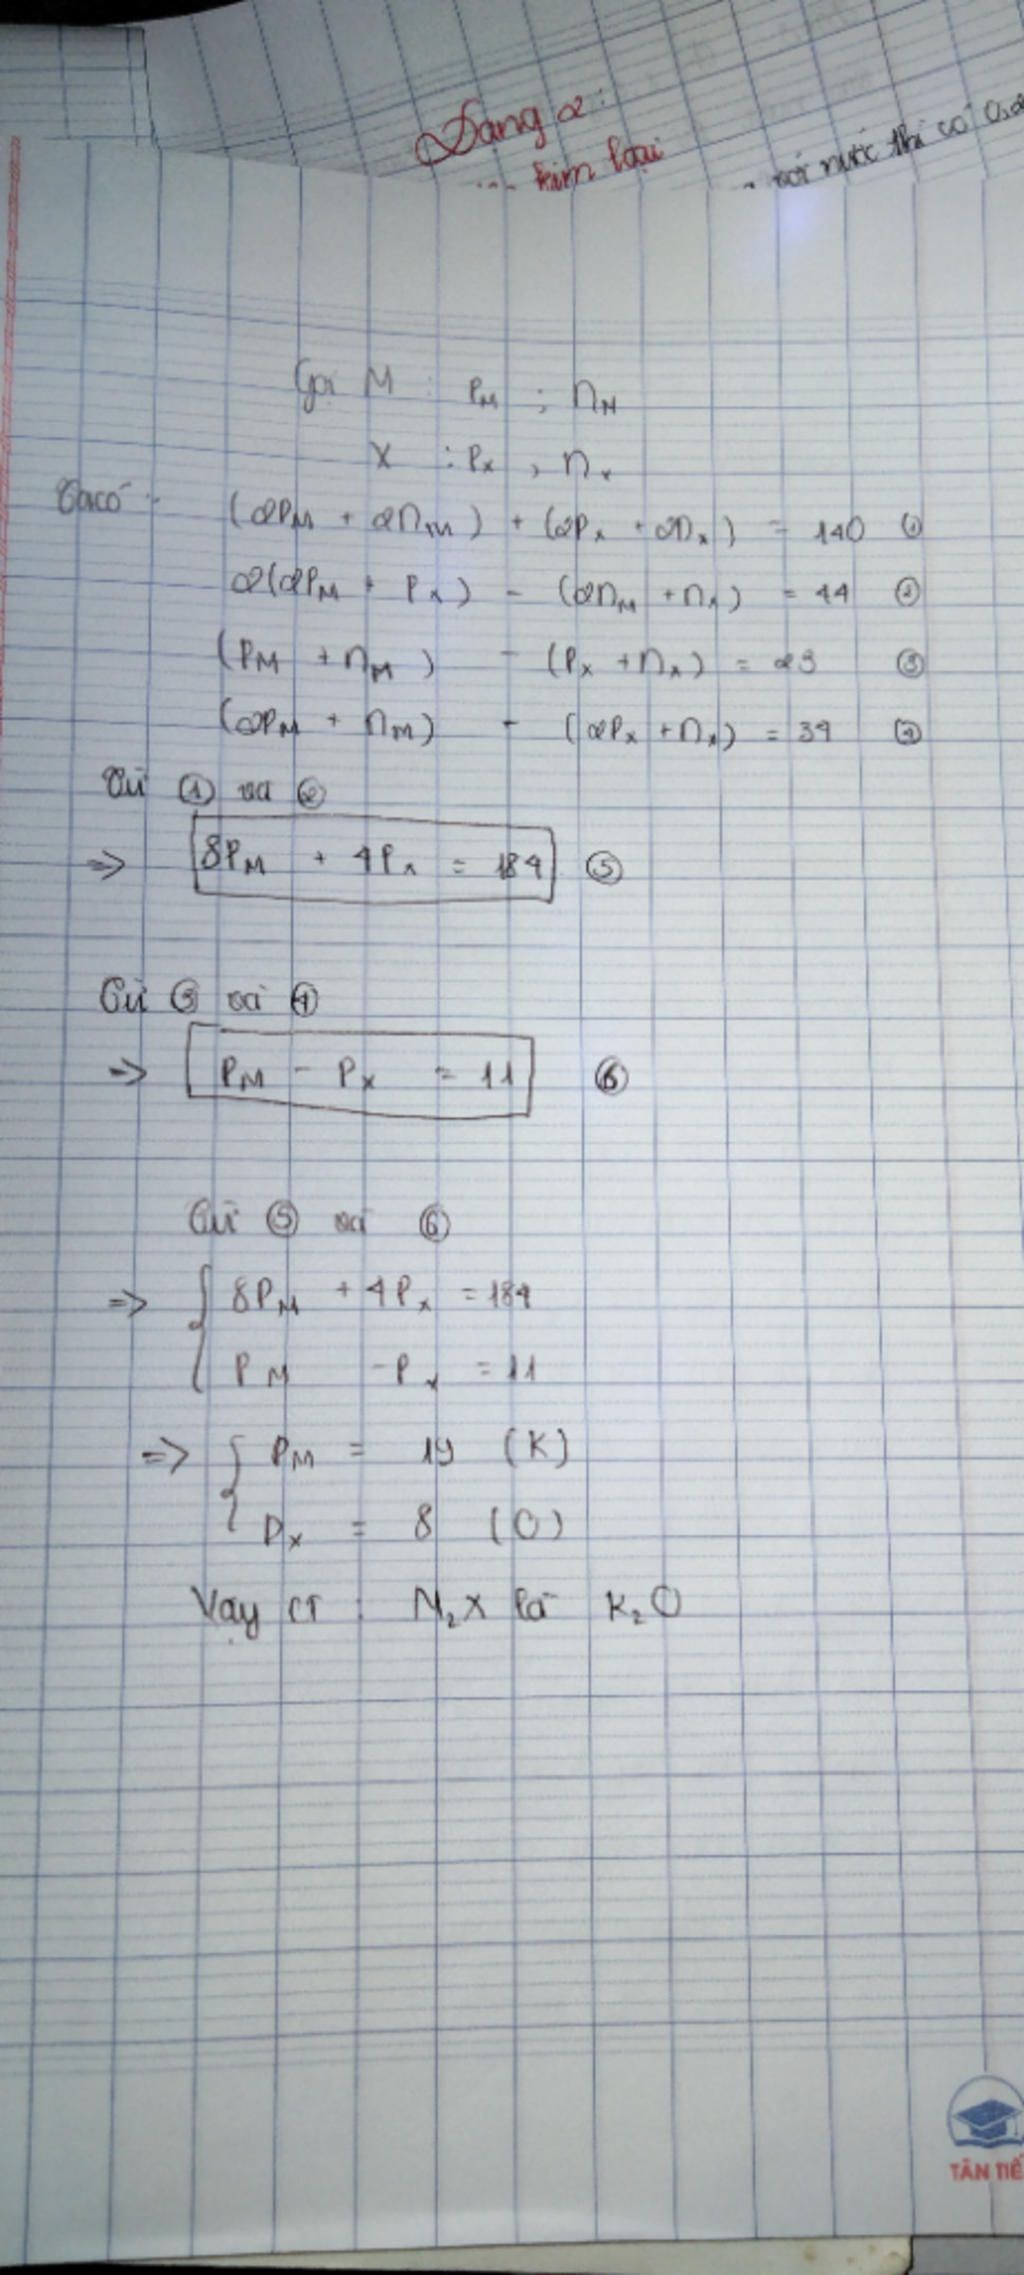 Dạng 2:
kim loại
với nước thì có
Gọi M : PM ; nM
X : PX , nX
Ta có
(2PM + 2nM) + (2PX + 2nX) = 140 ①
2(2PM + PX) - (2nM + nX) = 44 ②
(PM + nM) - (PX + nX) = 23 ③
(2PM + nM) - (2PX + nX) = 34 ④
Từ ① và ②
=> 8PM + 4PX = 184 ⑤
Từ ③ và ④
=> PM - PX = 11 ⑥
Từ ⑤ và ⑥
=> { 8PM + 4PX = 184
PM - PX = 11
=> { PM = 19 (K)
PX = 8 (O)
Vậy CT : M₂X là K₂O
TÂN TIẾ